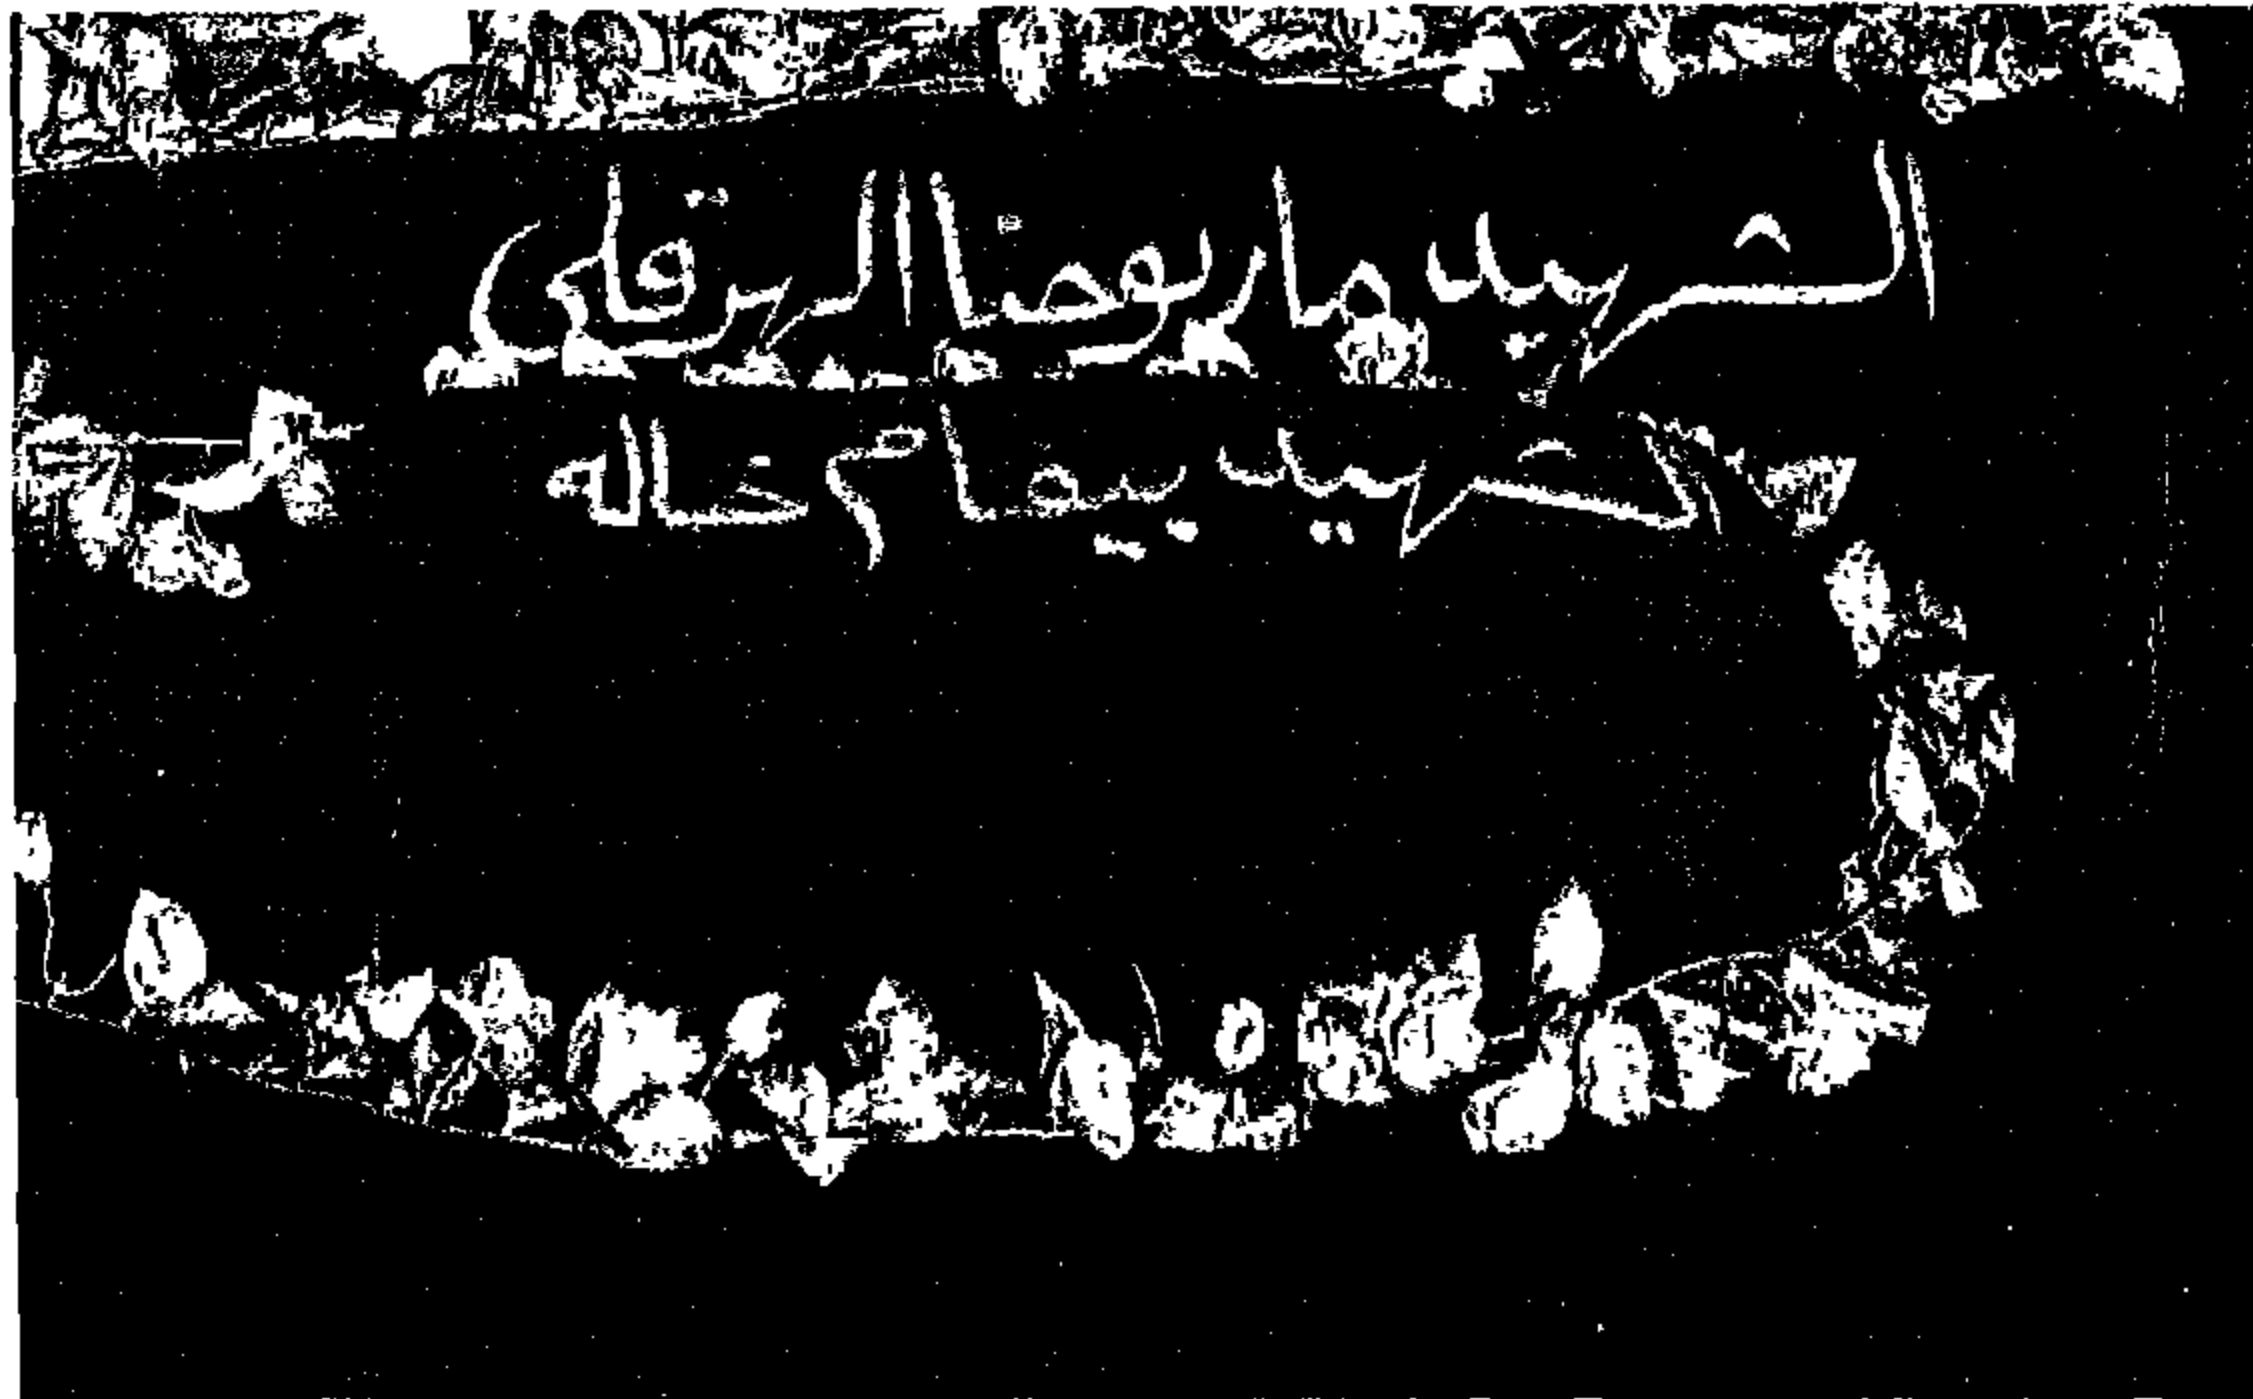 الشهيد مار يوحنا الهرقلى
الشهيد يسمام خاله